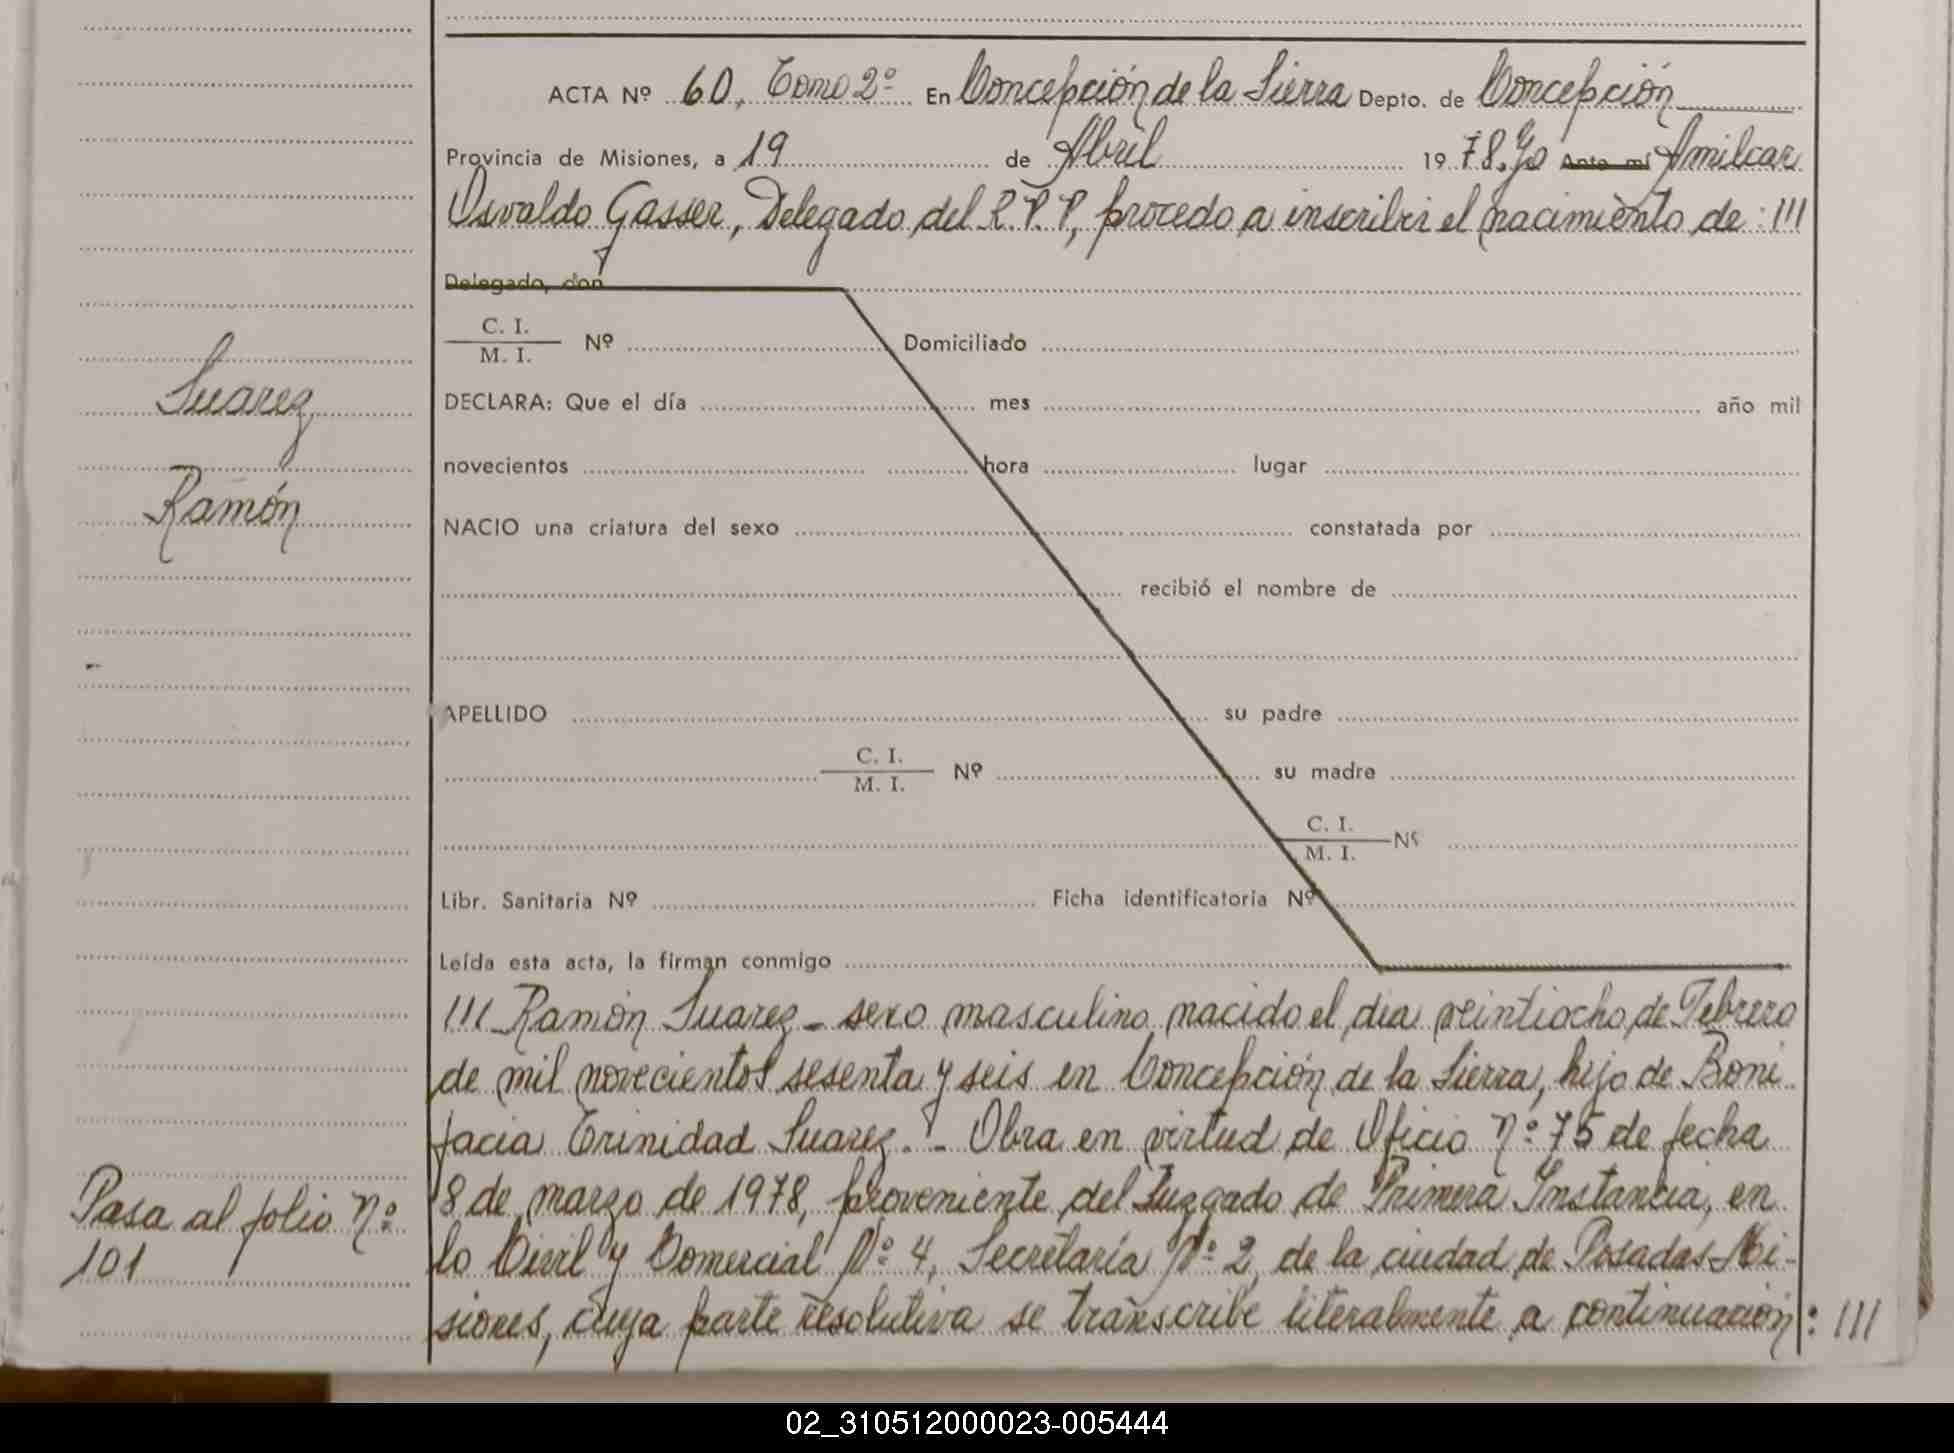 ACTA Nº 60, Tomo 2º En Concepción de la Sierra Depto. de Concepción
Provincia de Misiones, a 19 de Abril 1978. Yo Ante mí Amilcar
Osvaldo Gasser, Delegado del R.P.P, procedo a inscribir el nacimiento de: III
Delegado, don
C. I.
M. I. Nº Domiciliado
DECLARA: Que el día mes año mil
novecientos hora lugar
NACIO una criatura del sexo constatada por
recibió el nombre de
APELLIDO su padre
C. I.
M. I. Nº su madre
C. I.
M. I. Nº
Libr. Sanitaria Nº Ficha identificatoria Nº
Leída esta acta, la firman conmigo
Suarez
Ramón
III Ramón Suarez - sexo masculino nacido el dia veintiocho de Febrero
de mil novecientos sesenta y seis en Concepción de la Sierra, hijo de Boni
facia Trinidad Suarez. - Obra en virtud de Oficio Nº 75 de fecha
8 de marzo de 1978, proveniente del Juzgado de Primera Instancia, en
lo Civil y Comercial Nº 4, Secretaría Nº 2 de la ciudad de Posadas-Mi-
siones, cuya parte resolutiva se transcribe literalmente a continuación: III
Pasa al folio Nº
101
02_310512000023-005444